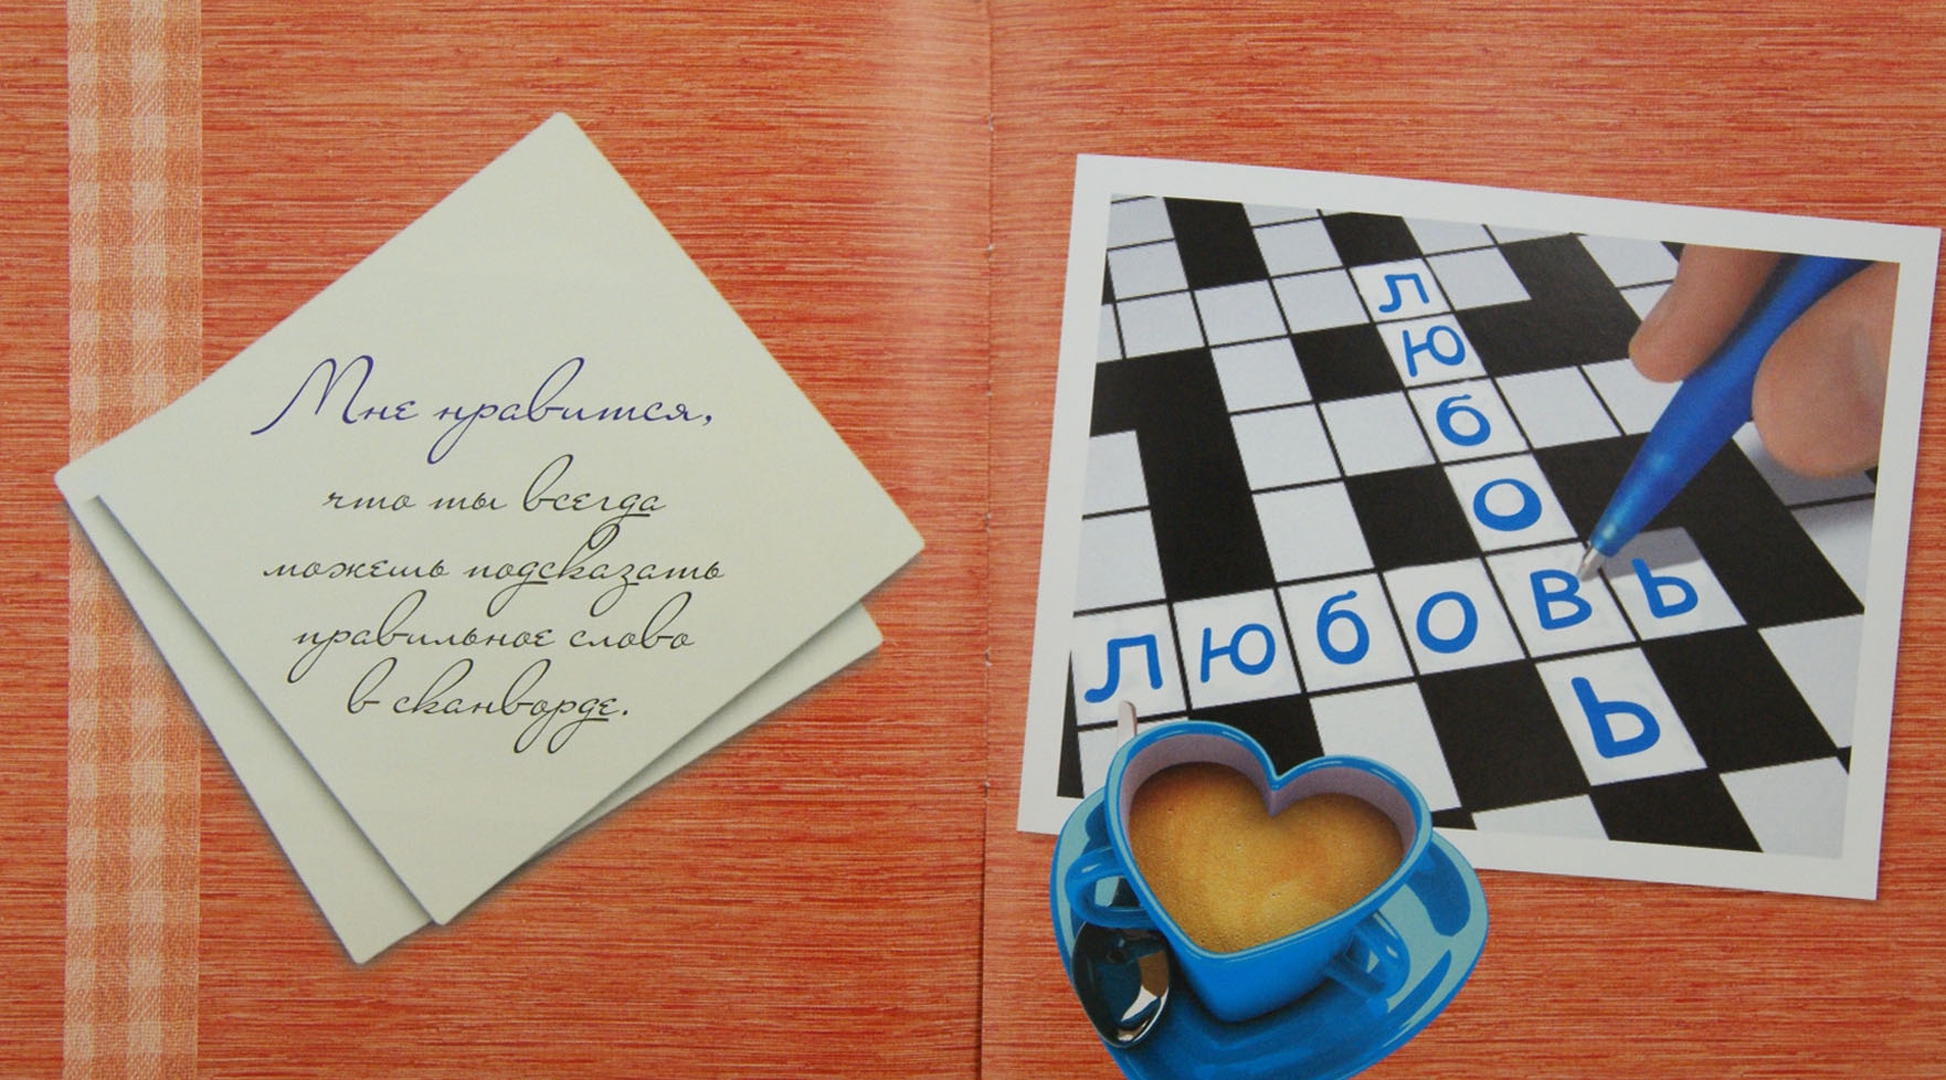 Мне нравится,
что ты всегда
можешь подсказать
правильное слово
в сканворде.
любовь
любовь